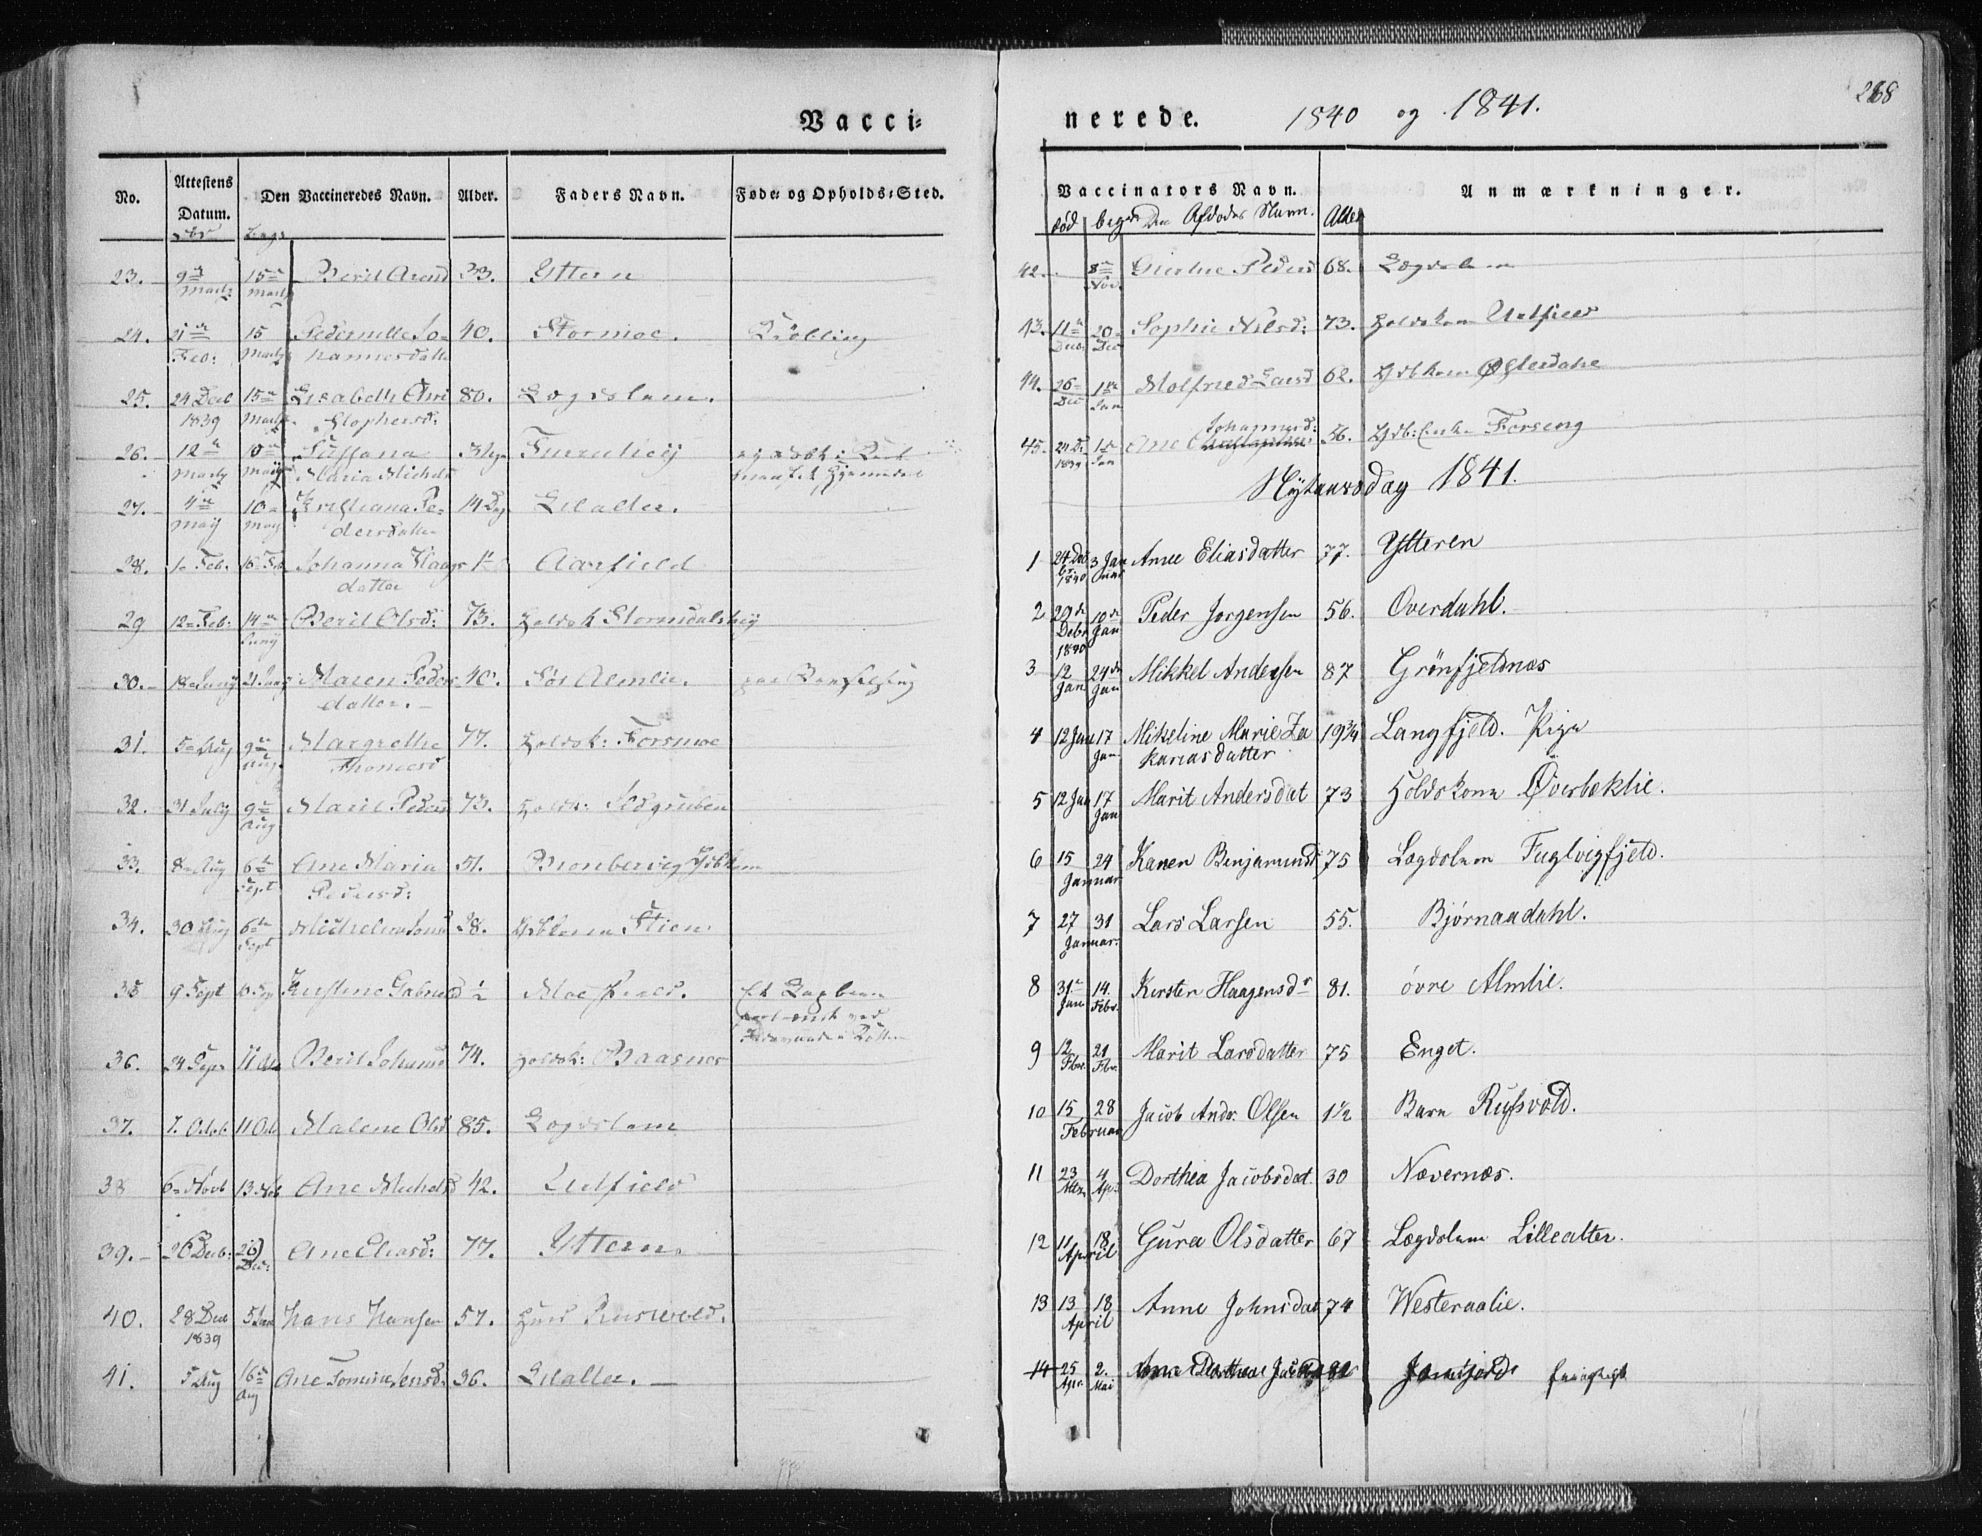 Vacci=
No. Attestens Datum. Den Vaccineredes Navn. Alder. Faders Navn. Føde- og Opholds-Sted.
23. 9de Marts 15de Marts Berit Arnsd 33. Yttern
24. 21de Feb: 15 Marts Pedernille Jo=
hannesdatter 40. Stormoe.
25. 24 Decb 1839 15de Marts Elisabeth Chri
stophersd. 80. Lægdslem.
26. 12te Marts 10de Maij Sussana
Maria Michels
27. 4de Maij 10de Maij Kristiana Pe=
dersdatter 14 Dg Lilalter.
28. 1e Feb. 16 Feb Johanna Haags
datter 1½ Aarfield
29 12te Feb: 14de Junij Berit Olsd: 73. Holdsk Stormdalshej
30. 18de Junij 21 Junij Maren Peders
datter. 40. Sør Almlie.
31. 5te Aug 9de Aug. Margrethe
Thomesd 77. Holdsk: Forsmoe
32. 31 July 9de Aug Marit Peders 73. Holdk: Seljgruben
33. 8de Aug 6te Sept Ane Maria
Pedersd: 51.
34. 30 Aug 6te Sept 28. Stien.
35 9 Sept Kirstine Gabrielsd ½ Moe
36. 24 Sept 11 Oct Berit Johansd 74. Holdsk: Baasnes
37. 7. Octob. 11 Oct Malene Olsd 85. Lægdslem
38 6te Novb 13 Nov Ane Michelsd 42. Utfield
39. 26 Decb: 26 Dec: Ane Eliasd: 77. Yttern.
40. 28 Decb 1839 5 Jan Hans Hansen 57. Husd Ruswold.
41. 5 Aug 16de Aug Ane Tomine Jensd: 36. Lilalter.
nerede. 1840 og 1841. 268
Vaccinators Navn. Anmærkninger.
død begr Den Afdødes Navn. Alder
42. 8de Nov. Giertrue Pedersd 68. Lægdslem
43. 11te Decb: 20de Dec Sophie Nilsd: 73. Holdskone Utfield
44. 26 Dec 1ste Jan Molfried Larsd 62. Østerdahl
45. 24 D. 1839 1ste Jan Ane Johannesd: 56. Forseng
Nytaarsdag 1841.
1 24 Decbr. 1840 3 Januar Anne Eliasdatter 77. Ytteren
2 29de Debr 1840 10de Jan Peder Jørgensen 56. Overdahl.
3 12 Jan 24de Jan Mikkel Andersen 87 Grönfjeldnæs
4 12 Jan 17 Jan Mikeline Marie Za
kariasdatter 19¾ Langfjeld. Pige
5 12 Jan 17 Jan Marit Andersdat 73 Holdskone Øverbæklie.
6 15 24 Januar Karen Benjaminsd 75 Lægdslem Fuglvigfjeld.
7 27 31 Januar. Lars Larsen 55. Bjørnaadahl.
8 31te Jan 14. Febr. Kirsten Haagensdr 81. övre Almlie.
9 12 Fbr. 21 Fbr. Marit Larsdatter 75 Enget.
10 15 28 Februar Jacob Andr. Olsen 1½ Barn Russvold.
11 23 4 Apr. Dorthea Jacobsdat. 30 Nævernæs.
12 11 18 April Gura Olsdatter 67 Lægdslem Lillealter.
13 13 18 April Anne Johnsdat 74 Westeraalie.
14 25 Apr. 2. Mai Anna Dorthea